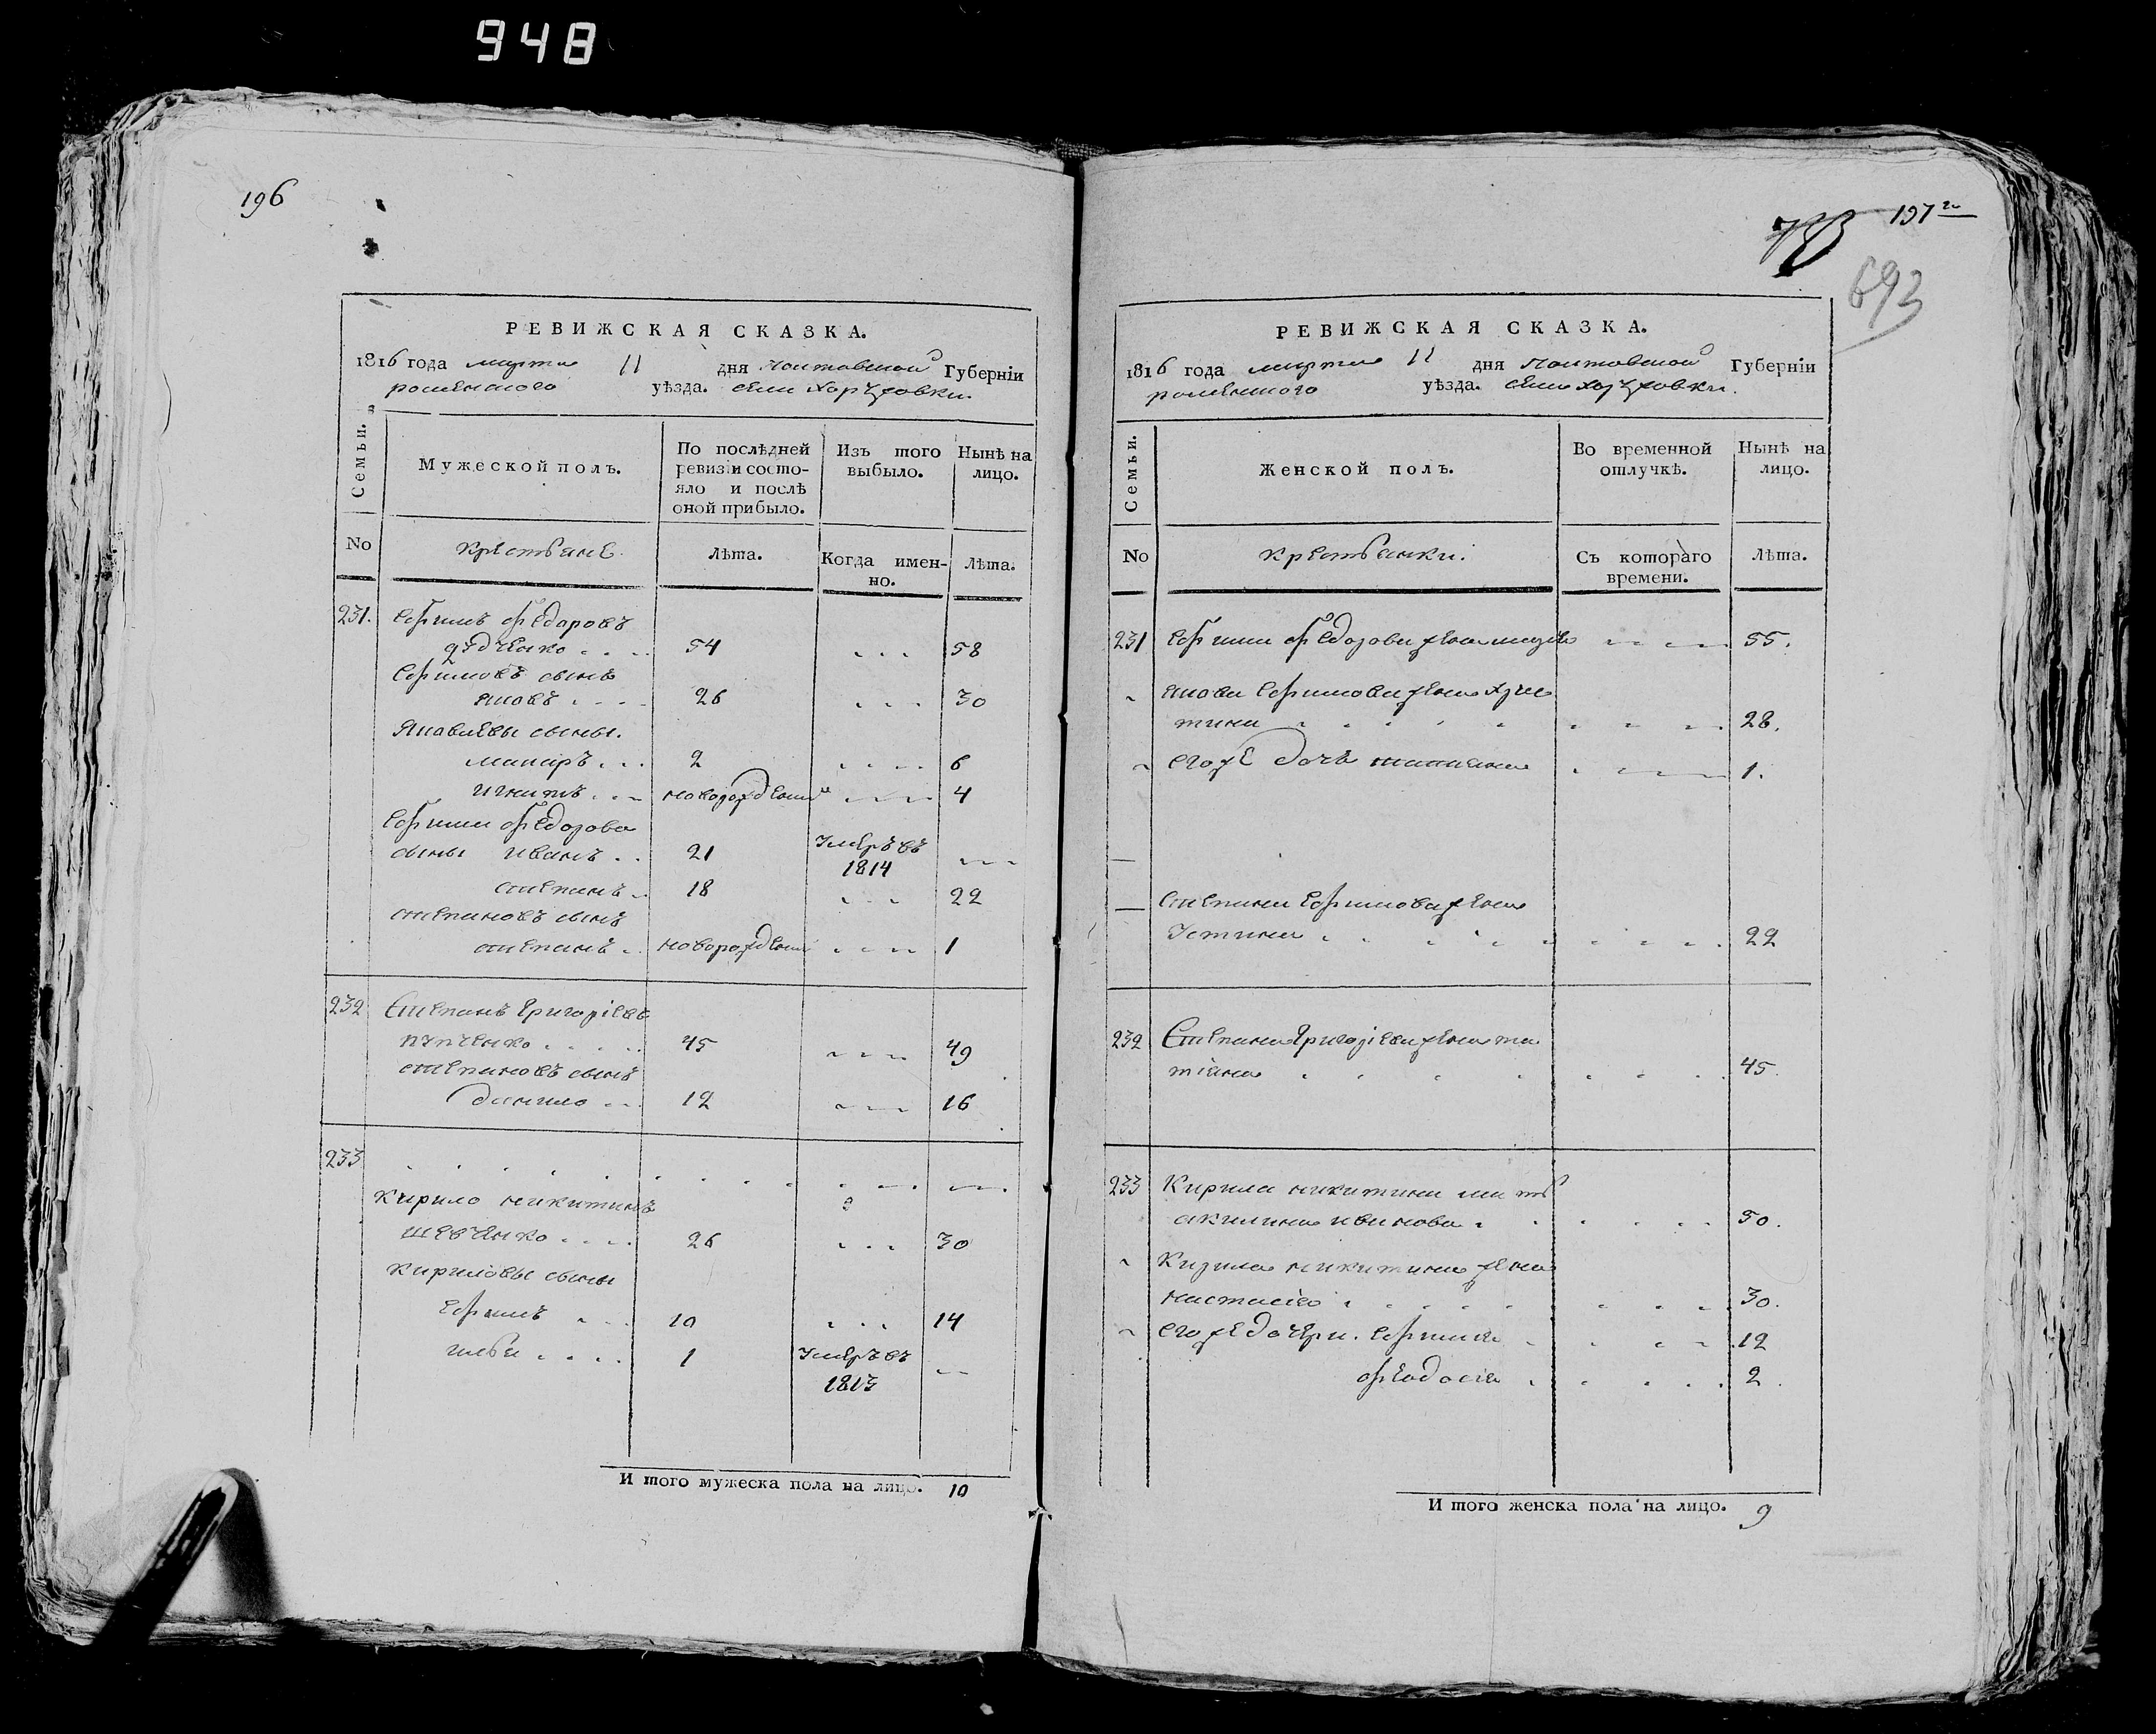 948
196
РЕВИЖСКАЯ СКАЗКА.
1816 года марта 11 дня Полтавской Губерніи
роменского уѣзда. села Хоружовки.
Семьи.
Мужеской полъ.
По послѣдней ревизіи состояло и послѣ оной прибыло.
Изъ того выбыло.
Нынѣ на лицо.
No
крестьяне.
Лѣта.
Когда именно.
Лѣта.
231. Ефимъ Федоровъ
дѣдченко 54 58
Ефимовъ сынъ
яковъ 26 30
Яковлевы сыны.
макаръ 2 6
игнатъ новорожденн 4
Ефима Федорова
сыны иванъ 21 Умеръ въ 1814
степанъ 18 22
степановъ сынъ
степанъ новорожден 1
232 Степанъ Григоріевъ
45 49
степановъ сынъ
данило 12 16
233
Кирило никитинъ
шевченко 26 30
Кириловы сыны
Ефимъ 10 14
илья 1 Умеръ въ 1813
И того мужеска пола на лицо. 10
197
693
РЕВИЖСКАЯ СКАЗКА.
1816 года марта 11 дня Полтавской Губерніи
роменского уѣзда. села Хоружовки.
Семьи.
Женской полъ.
Во временной отлучкѣ.
Нынѣ на лицо.
No
крестьянки.
Съ котораго времени.
Лѣта.
231 Ефима Федорова жена 55.
якова Ефимова жена хрис
тина 28.
его же дочь татияна 1.
Степана Ефимова жена
Устина 22
232 Степана Григоріева жена та
тіяна 45
233 Кирила никитина мать
акилина иванова 50.
Кирила никитина жена
настасія 30.
его же дочери. Ефимия 12
феодосія 2
И того женска пола на лицо. 9